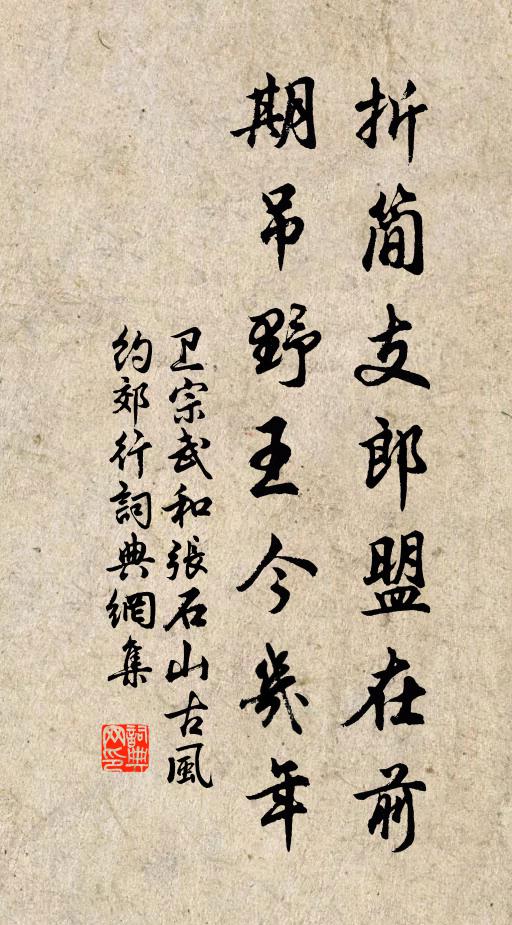 折简支郎盟在前
期吊野王今幾年
卫宗武和張石山古風
約郊行詞典網集
詞典网印